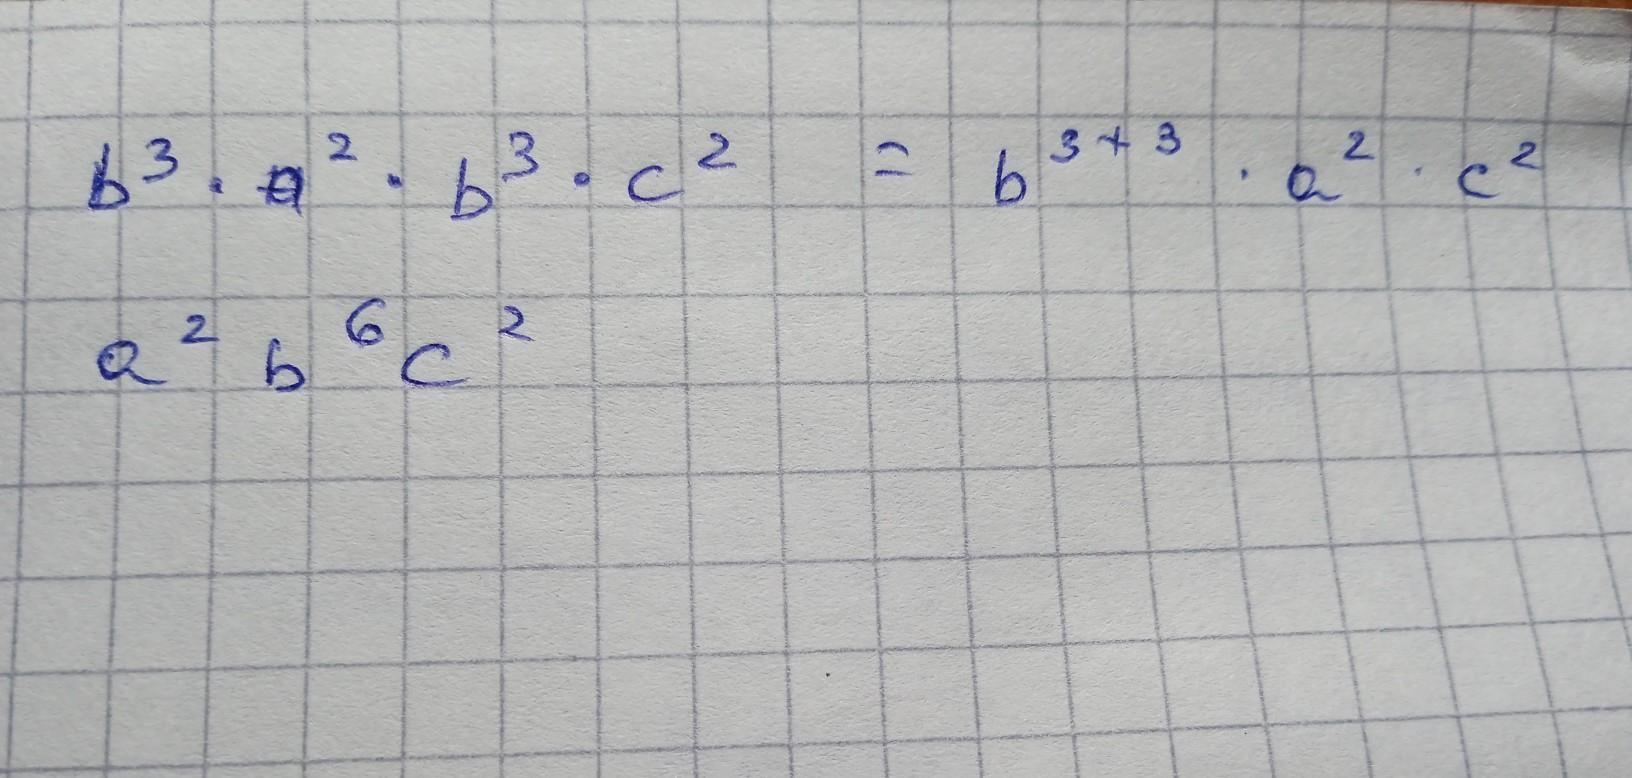 b³ · a² · b³ · c² = b³⁺³ · a² · c²
a² b⁶ c²